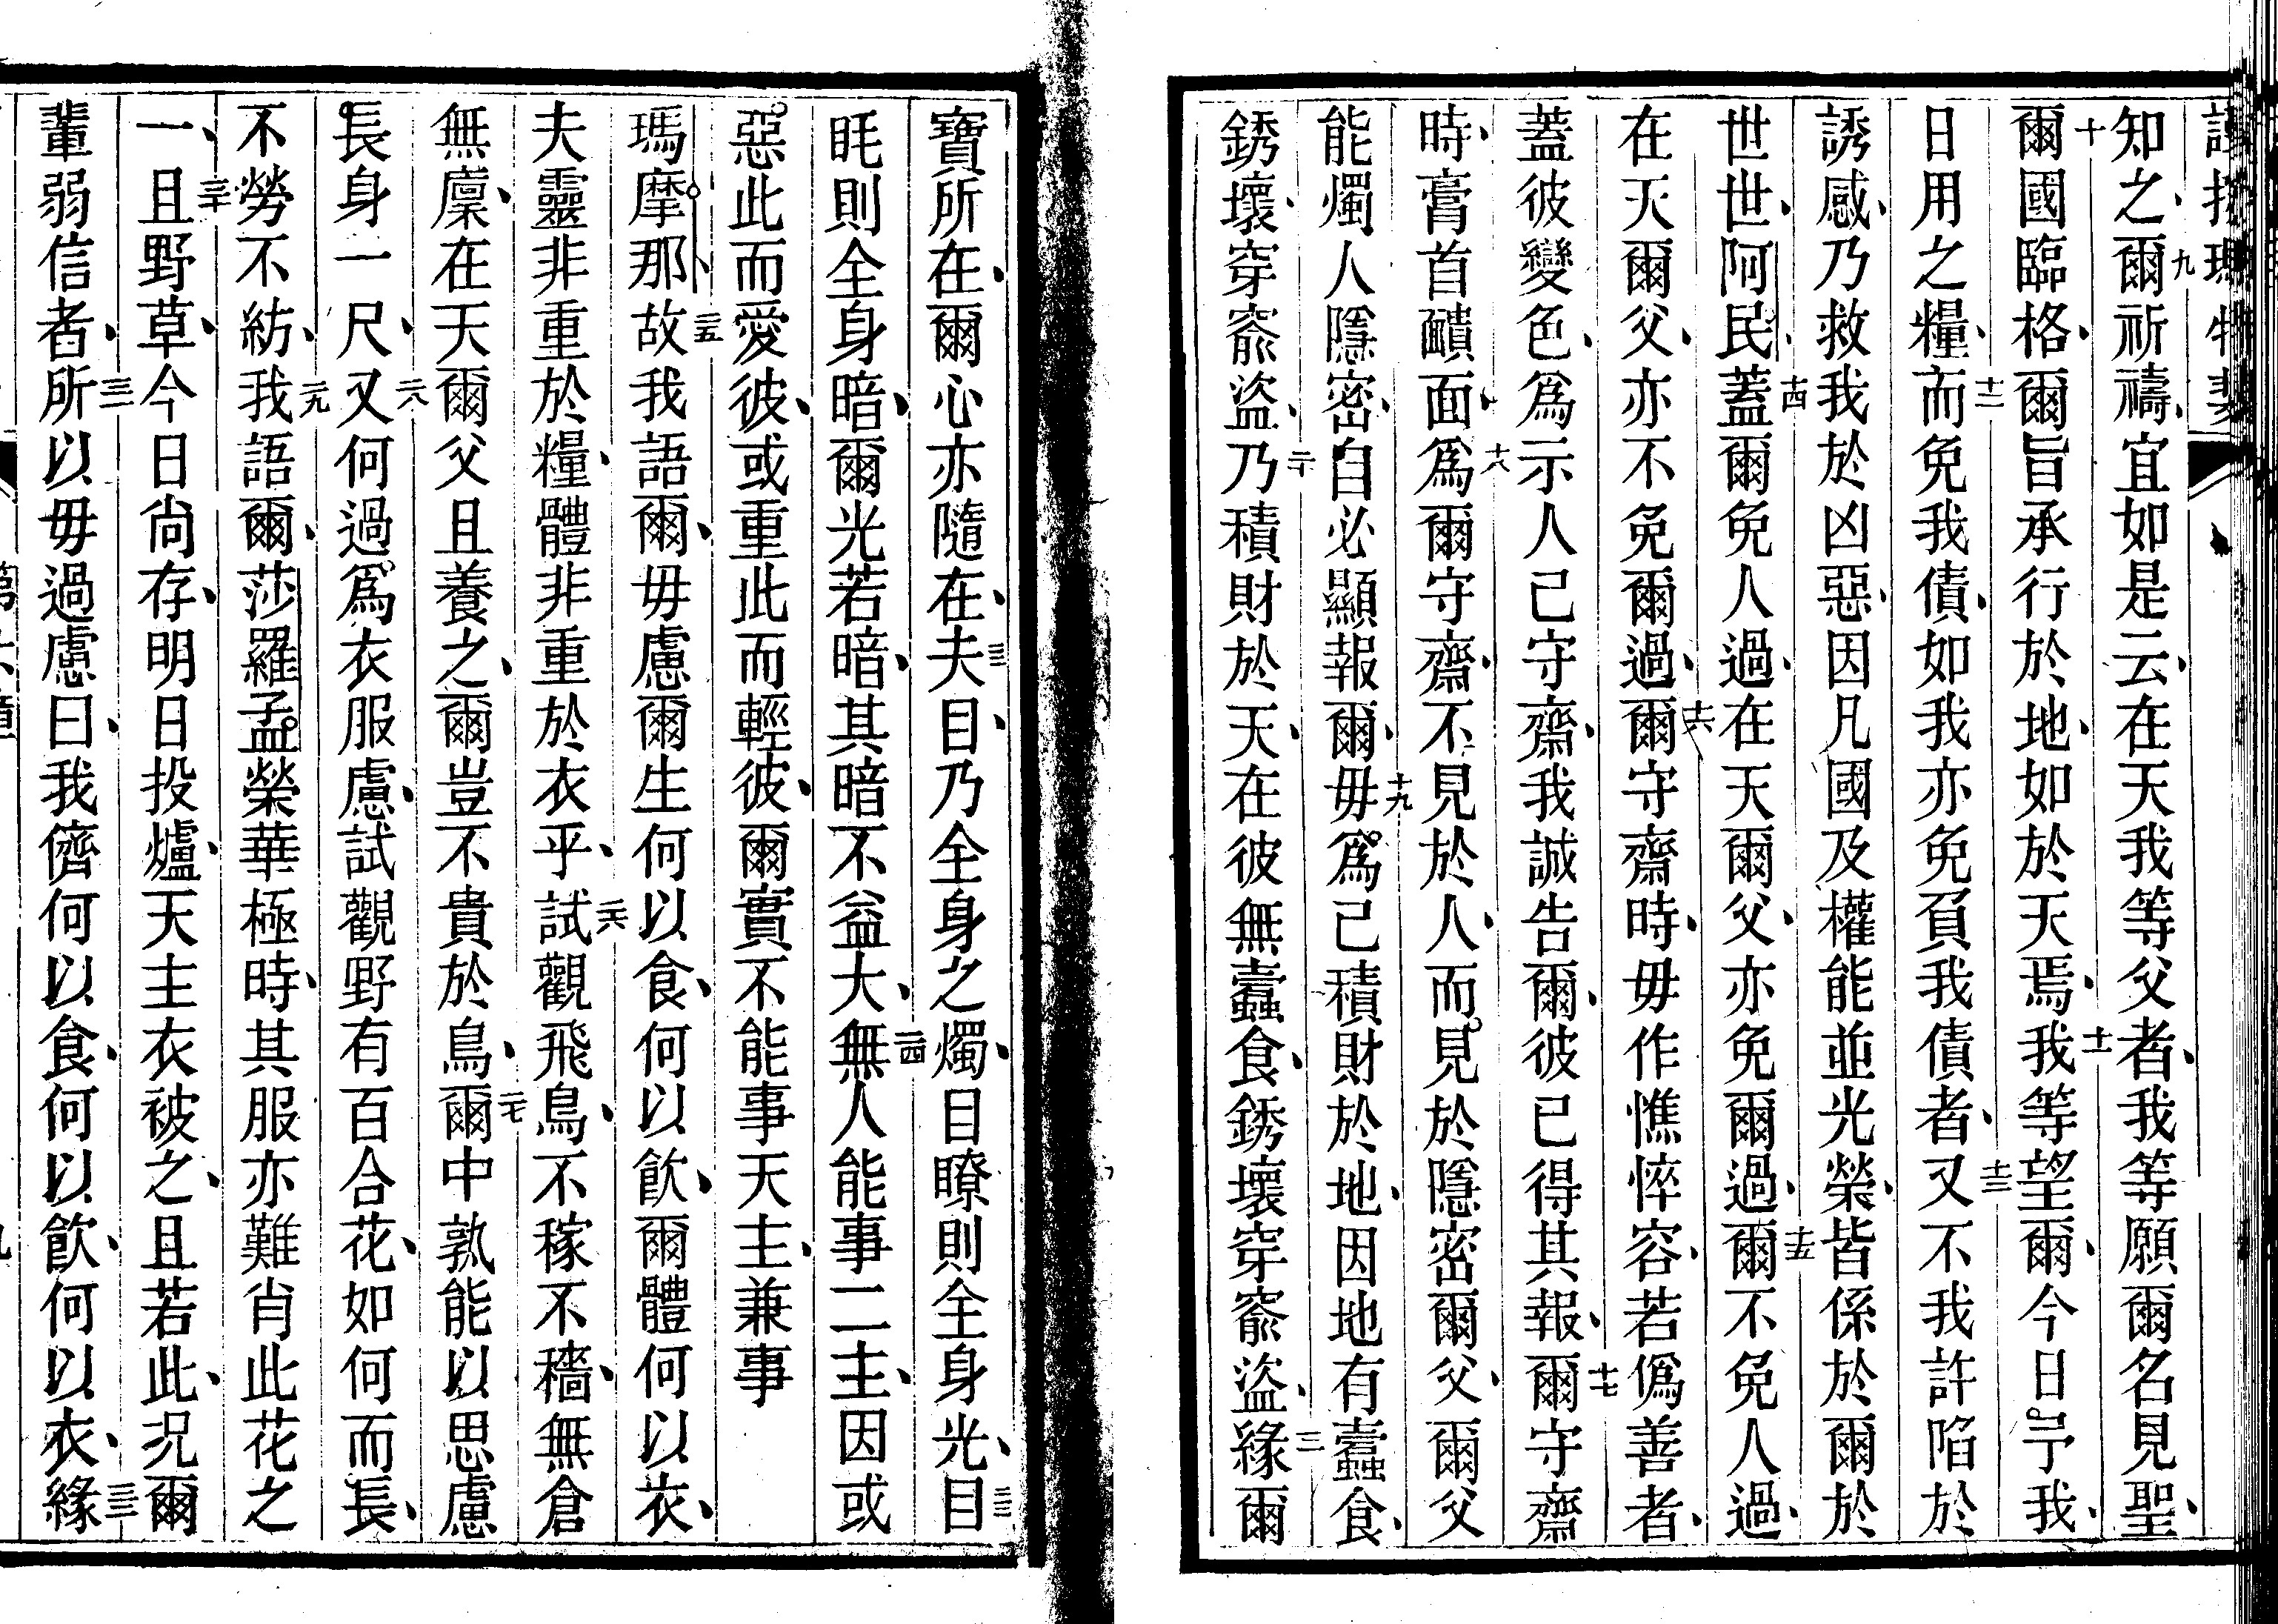 知之、九爾祈禱、宜如是云、在天我等父者、我等願爾名見聖、
十爾國臨格、爾旨承行於地、如於天焉、十一我等望爾、今日予我、
日用之糧、十二而免我債、如我亦免負我債者、十三又不我許陷於
誘感、乃救我於凶惡、因凡國及權能並光榮、皆係於爾於
世世、阿民、十四蓋爾免人過、在天爾父、亦免爾過、十五爾不免人過、
在天爾父、亦不免爾過、十六爾守齋時、毋作憔悴容、若僞善者、
蓋彼變色、爲示人己守齋、我誠告爾、彼已得其報、十七爾守齋
時、膏首靧面、十八爲爾守齋、不見於人、而見於隱密爾父、爾父
能燭人隱密、自必顯報爾、十九毋爲己積財於地、因地有蠹食、
銹壞、穿窬盜、二十乃積財於天、在彼無蠹食、銹壞穿窬盜、二一緣爾
寶所在、爾心亦隨在、二二夫目、乃全身之燭、目瞭則全身光、二三目
眊則全身暗、爾光若暗、其暗不益大、二四無人能事二主、因或
惡此而愛彼、或重此而輕彼、爾實不能事天主、兼事
瑪摩那、二五故我語爾、毋慮爾生何以食、何以飲、爾體何以衣、
夫靈非重於糧、體非重於衣乎、二六試觀飛鳥、不稼不穡、無倉
無廩、在天爾父且養之、爾豈不貴於鳥、二七爾中孰能以思慮
長身一尺、二八又何過爲衣服慮、試觀野有百合花、如何而長、
不勞不紡、二九我語爾、莎羅孟榮華極時、其服亦難肖此花之
一、三十且野草、今日尚存、明日投爐、天主衣被之、且若此、況爾
輩弱信者、三一所以毋過慮曰、我儕何以食、何以飲、何以衣、三二緣